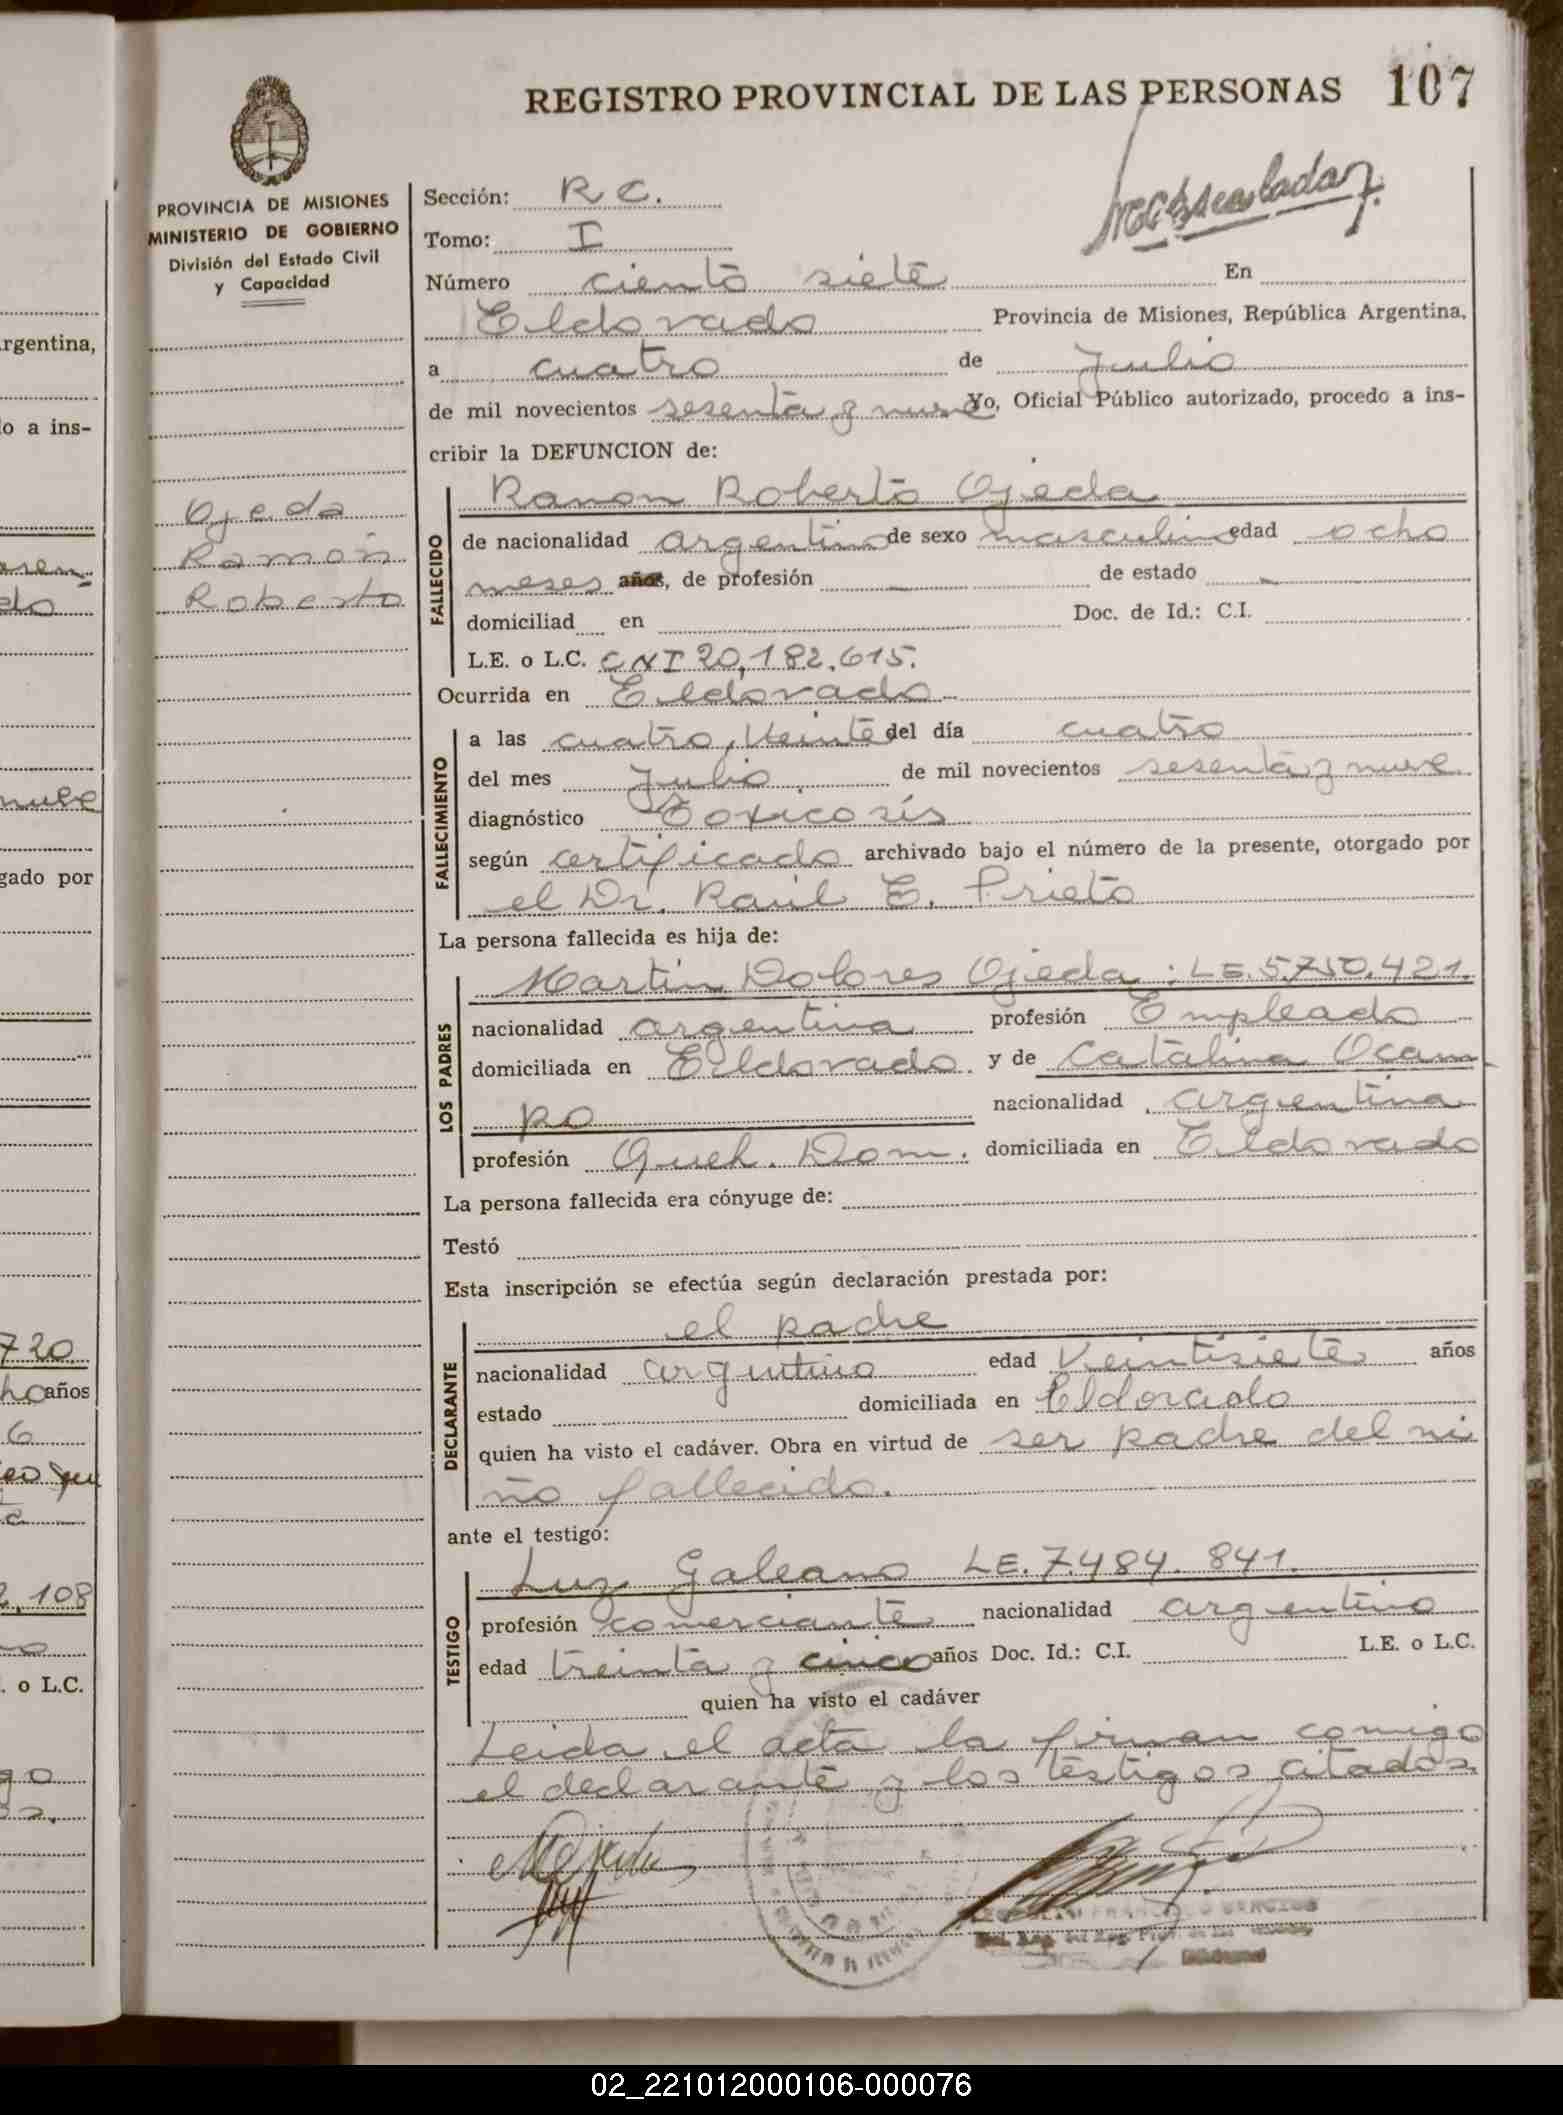 REGISTRO PROVINCIAL DE LAS PERSONAS 107
PROVINCIA DE MISIONES
MINISTERIO DE GOBIERNO
División del Estado Civil
y Capacidad
Ojeda
Ramón
Roberto
Sección: R C.
Tomo: I
Número ciento siete En
Eldorado Provincia de Misiones, República Argentina,
a cuatro de Julio
de mil novecientos sesenta y nueve Yo, Oficial Público autorizado, procedo a ins-
cribir la DEFUNCION de:
FALLECIDO
Ramon Roberto Ojeda
de nacionalidad argentino de sexo masculino edad ocho
meses años, de profesión — de estado —
domiciliad en Doc. de Id.: C.I.
L.E. o L.C. CNI 20,182,615.
Ocurrida en Eldorado
FALLECIMIENTO
a las cuatro, Veinte del día cuatro
del mes Julio de mil novecientos sesenta y nueve
diagnóstico Toxicosis
según certificado archivado bajo el número de la presente, otorgado por
el Dr. Raúl E. Prieto
La persona fallecida es hija de:
LOS PADRES
Martin Dolores Ojeda: LE. 5.750.421.
nacionalidad argentina profesión Empleado
domiciliada en Eldorado. y de Catalina Ocam
po nacionalidad argentina
profesión Queh. Dom. domiciliada en Eldorado
La persona fallecida era cónyuge de:
Testó
Esta inscripción se efectúa según declaración prestada por:
DECLARANTE
el padre
nacionalidad argentino edad Veintisiete años
estado domiciliada en Eldorado
quien ha visto el cadáver. Obra en virtud de ser padre del ni
ño fallecido.
ante el testigo:
TESTIGO
Luz Galeano LE. 7.484.841.
profesión comerciante nacionalidad argentino
edad treinta y cinco años Doc. Id.: C.I. L.E. o L.C.
quien ha visto el cadáver
Leida el acta la firman comigo
el declarante y los testigos citados.
MOjeda
rgentina,
o a ins-
gado por
720
años
6
108
. o L.C.
02_221012000106-000076